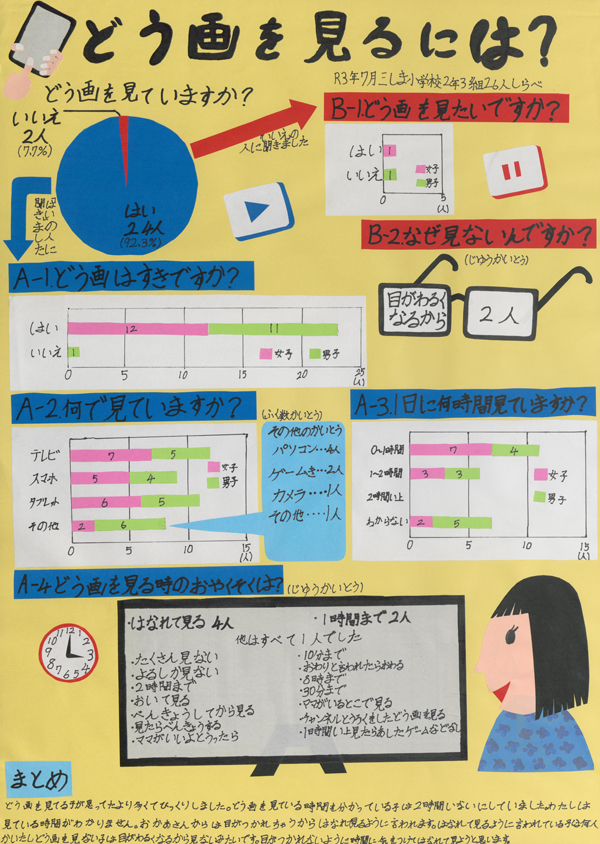 どう画を見るには?
R3年7月三しま小学校2年3組26人しらべ
どう画を見ていますか?
いいえ
2人
(7.7%)
はい
24人
(92.3%)
いいえの
人に聞きました
はいの人に
聞きました
B-1.どう画を見たいですか?
はい 1
いいえ 1
女子
男子
0 5
(人)
B-2.なぜ見ないんですか?
(じゆうかいとう)
目がわるく
なるから
2人
A-1.どう画はすきですか?
はい 12 11
いいえ 1
女子 男子
0 5 10 15 20 25
(人)
A-2.何で見ていますか?
(ふく数かいとう)
テレビ 7 5
スマホ 5 4
タブレット 6 5
その他 2 6
女子
男子
0 5 10 15
(人)
その他のかいとう
パソコン…4人
ゲームき…2人
カメラ….1人
その他….1人
A-3.1日に何時間見ていますか?
0~1時間 7 4
1~2時間 3 3
2時間以上
わからない 2 5
女子
男子
0 5 10 15
(人)
A-4どう画を見る時のおやくそくは?
(じゆうかいとう)
12 1 2 3 4 5 6 7 8 9 10 11
・はなれて見る 4人
・1時間まで2人
他はすべて1人でした
・たくさん見ない
・よるしか見ない
・2時間まで
・おいて見る
・べんきょうしてから見る
・見たらべんきょうする
・ママがいいよとうったら
・10分まで
・おわりと言われたらおわる
・8時まで
・30分まで
・ママがいるとこで見る
・チャンネルとうろくをしたどう画を見る
・1日時間い上見たらあしたゲームなどなし
まとめ
どう画を見てる子が思ってたより多くてびっくりしました。どう画を見ている時間を分かっている子は2時間いないにしていました。わたしは
見ている時間がわかりません。おかあさんからは目がつかれちゃうからはなれて見るように言われます。はなれて見るように言われている子は4人
かいたしどう画を見ない子は目がわるくなるから見ないみたいです。目がつかれないように時間に気をつけてはなれて見ようと思います。